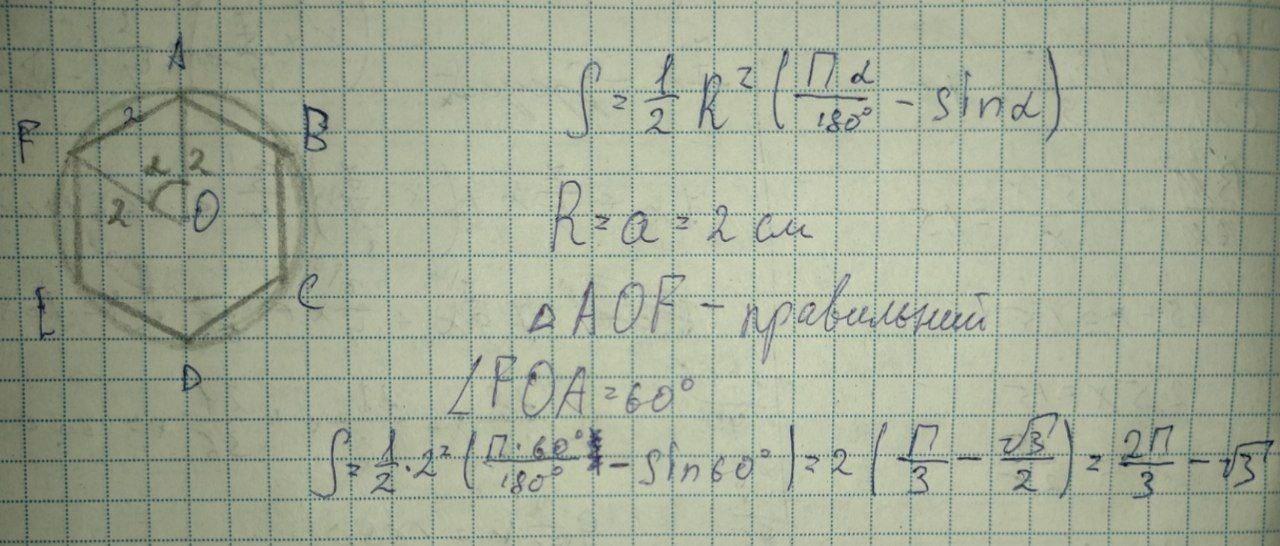 A
F
2
B
2
2
2
O
E
C
D
S = 1/2 R² (Πα/180° - sinα)
R = a = 2 см
△AOF - правильний
∠FOA = 60°
S = 1/2 · 2² (Π · 60°/180° - sin60°) = 2 (Π/3 - √3/2) = 2Π/3 - √3